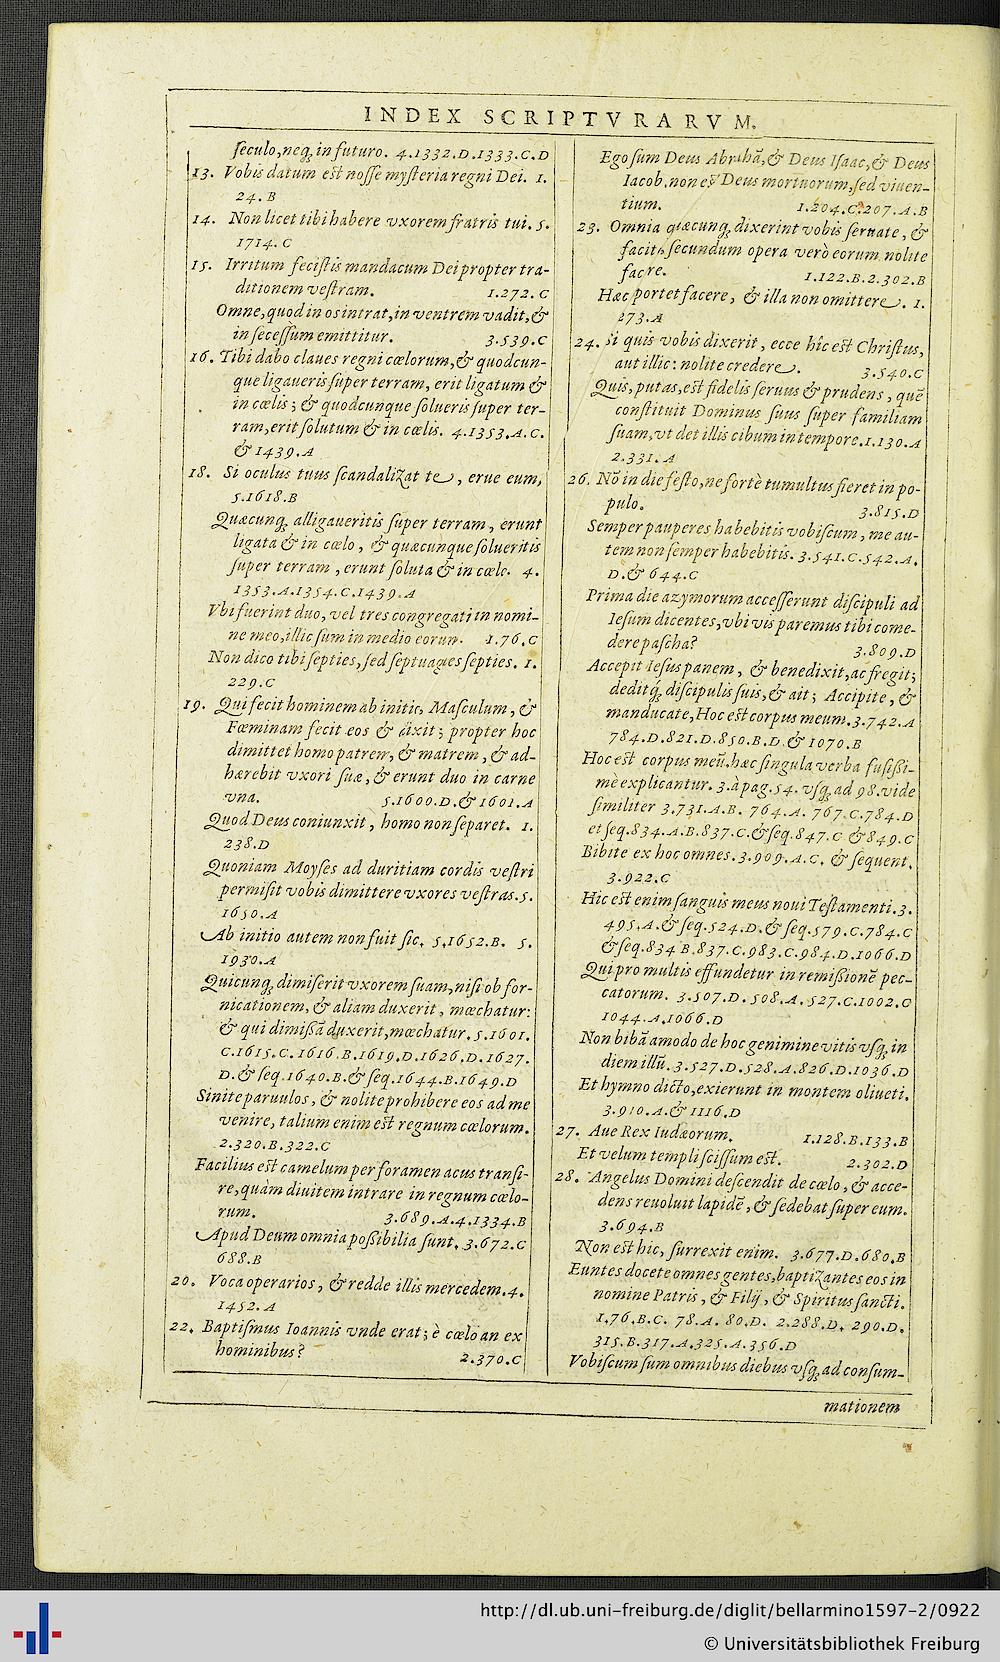 INDEX SCRIPTVRARVM.
ſeculo, neq́ in futuro. 4.1332.D.1333.C.D
13. Vobis datum eſt noſſe myſteria regni Dei. 1.
24.B
14. Non licet tibi habere vxorem fratris tui. 5.
1714.C
15. Irritum feciſtis mandacum Dei propter tra-
ditionem veſtram. 1.272.C
Omne, quod in os intrat, in ventrem vadit, &
in ſeceſſum emittitur. 3.539.C
16. Tibi dabo claues regni cœlorum, & quodcun-
que ligaueris ſuper terram, erit ligatum &
in cœlis; & quodcunque ſolueris ſuper ter-
ram, erit ſolutum & in cœlis. 4.1353.A.C.
& 1439.A
18. Si oculus tuus ſcandalizat te, erue eum,
5.1618.B
Quæcunq́ alligaueritis ſuper terram, erunt
ligata & in cœlo, & quæcunque ſolueritis
ſuper terram, erunt ſoluta & in cœlo. 4.
1353.A.1354.C.1439.A
Vbi fuerint duo, vel tres congregati in nomi-
ne meo, illic ſum in medio eorum. 1.76.C
Non dico tibi ſepties, ſed ſeptuagies ſepties. 1.
229.C
19. Qui fecit hominem ab initio, Maſculum, &
Fœminam fecit eos & dixit; propter hoc
dimittet homo patrem, & matrem, & ad-
hærebit vxori ſuæ, & erunt duo in carne
vna. 5.1600.D.& 1601.A
Quod Deus coniunxit, homo non ſeparet. 1.
238.D
Quoniam Moyſes ad duritiam cordis veſtri
permiſit vobis dimittere vxores veſtras. 5.
1650.A
Ab initio autem non fuit ſic. 5.1652.B. 5.
1930.A
Quicunq́ dimiſerit vxorem ſuam, niſi ob for-
nicationem, & aliam duxerit, mœchatur:
& qui dimiſſā duxerit, mœchatur. 5.1601.
C.1615.C.1616.B.1619.D.1626.D.1627.
D.& ſeq.1640.B.& ſeq.1644.B.1649.D
Sinite paruulos, & nolite prohibere eos ad me
venire, talium enim eſt regnum cœlorum.
2.320.B.322.C
Facilius eſt camelum per foramen acus tranſi-
re, quàm diuitem intrare in regnum cœlo-
rum. 3.689.A.4.1334.B
Apud Deum omnia poßibilia ſunt. 3.672.C
688.B
20. Voca operarios, & redde illis mercedem. 4.
1452.A
22. Baptiſmus Ioannis vnde erat; è cœlo an ex
hominibus? 2.370.C
Ego ſum Deus Abrahā, & Deus Iſaac, & Deus
Iacob, non eſt Deus mortuorum, ſed viuen-
tium. 1.204.C.207.A.B
23. Omnia quæcunq́ dixerint vobis ſeruate, &
facite, ſecundum opera verò eorum nolite
facere. 1.122.B.2.302.B
Hæc oportet facere, & illa non omittere. 1.
273.A
24. Si quis vobis dixerit, ecce hîc eſt Chriſtus,
aut illic: nolite credere. 3.540.C
Quis, putas, eſt fidelis ſeruus & prudens, quē
conſtituit Dominus ſuus ſuper familiam
ſuam, vt det illis cibum in tempore. 1.130.A
2.331.A
26. Nō in die feſto, ne fortè tumultus fieret in po-
pulo. 3.815.D
Semper pauperes habebitis vobiſcum, me au-
tem non ſemper habebitis. 3.541.C.542.A.
D.& 644.C
Prima die azymorum acceſſerunt diſcipuli ad
Ieſum dicentes, vbi vis paremus tibi come-
dere paſcha? 3.809.D
Accepit Ieſus panem, & benedixit, ac fregit;
deditq́ diſcipulis ſuis, & ait; Accipite, &
manducate, Hoc eſt corpus meum. 3.742.A
784.D.821.D.850.B.D.& 1070.B
Hoc eſt corpus meū. hæc ſingula verba fuſißi-
mè explicantur. 3. à pag. 54. vſq́ ad 98. vide
ſimiliter 3.731.A.B. 764.A. 767.C.784.D
et ſeq.834.A.B.837.C.& ſeq.847.C & 849.C
Bibite ex hoc omnes. 3.909.A.C. & ſequent.
3.922.C
Hic eſt enim ſanguis meus noui Teſtamenti. 3.
495.A.& ſeq.524.D.& ſeq.579.C.784.C
& ſeq.834 B.837.C.983.C.984.D.1066.D
Qui pro multis effundetur in remißionē pec-
catorum. 3.507.D.508.A.527.C.1002.C
1044.A.1066.D
Non bibā amodo de hoc genimine vitis vſq́ in
diem illū. 3.527.D.528.A.826.D.1036.D
Et hymno dicto, exierunt in montem oliueti.
3.910.A.& 1116.D
27. Aue Rex Iudæorum. 1.128.B.133.B
Et velum templi ſciſſum eſt. 2.302.D
28. Angelus Domini deſcendit de cœlo, & acce-
dens reuoluit lapidē, & ſedebat ſuper eum.
3.694.B
Non eſt hic, ſurrexit enim. 3.677.D.680.B
Euntes docete omnes gentes, baptizantes eos in
nomine Patris, & Filij, & Spiritus ſancti.
1.76.B.C. 78.A. 80.D. 2.288.D. 290.D.
315.B.317.A.325.A.356.D
Vobiſcum ſum omnibus diebus vſq́ ad conſum-
mationem
http://dl.ub.uni-freiburg.de/diglit/bellarmino1597-2/0922
© Universitätsbibliothek Freiburg